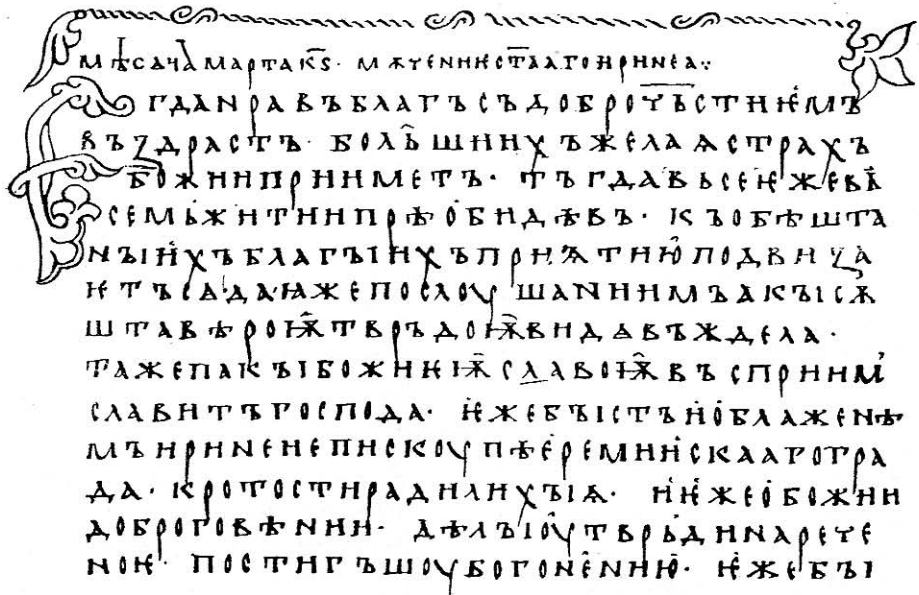 мѣсѧца марта к҃ѕ· мѫчениѥ ст҃ааго иринеа⁘
Ѥгда нравъ благъ съ доброч҃ьстиѥмъ
въздрастъ· бол҄ьшиихъ желаѩ страхъ
божии прииметъ· тъгда вьсе ѥже въ
семь житии прѣобидѣвъ· къ обѣшта
нъіихъ благъіихъ приѩтию подвиза
ѥтъ сѧ· да ꙗже послоушаниимъ акъі сѫ
шта вѣроѭ твръдоѭ видѧ въждела·
таже пакъі божиѥѭ славоѭ въсприимъ
славитъ господа· ѥже бъістъ и о блаженѣ
мъ иринеи епискоупѣ еремиискааго гра
да· кротости ради лихъіѩ· и ѥже о божии
доброговѣнии· дѣлъі оутврьди нарече
ноѥ· постигъшоу бо гонению· ѥже бъі